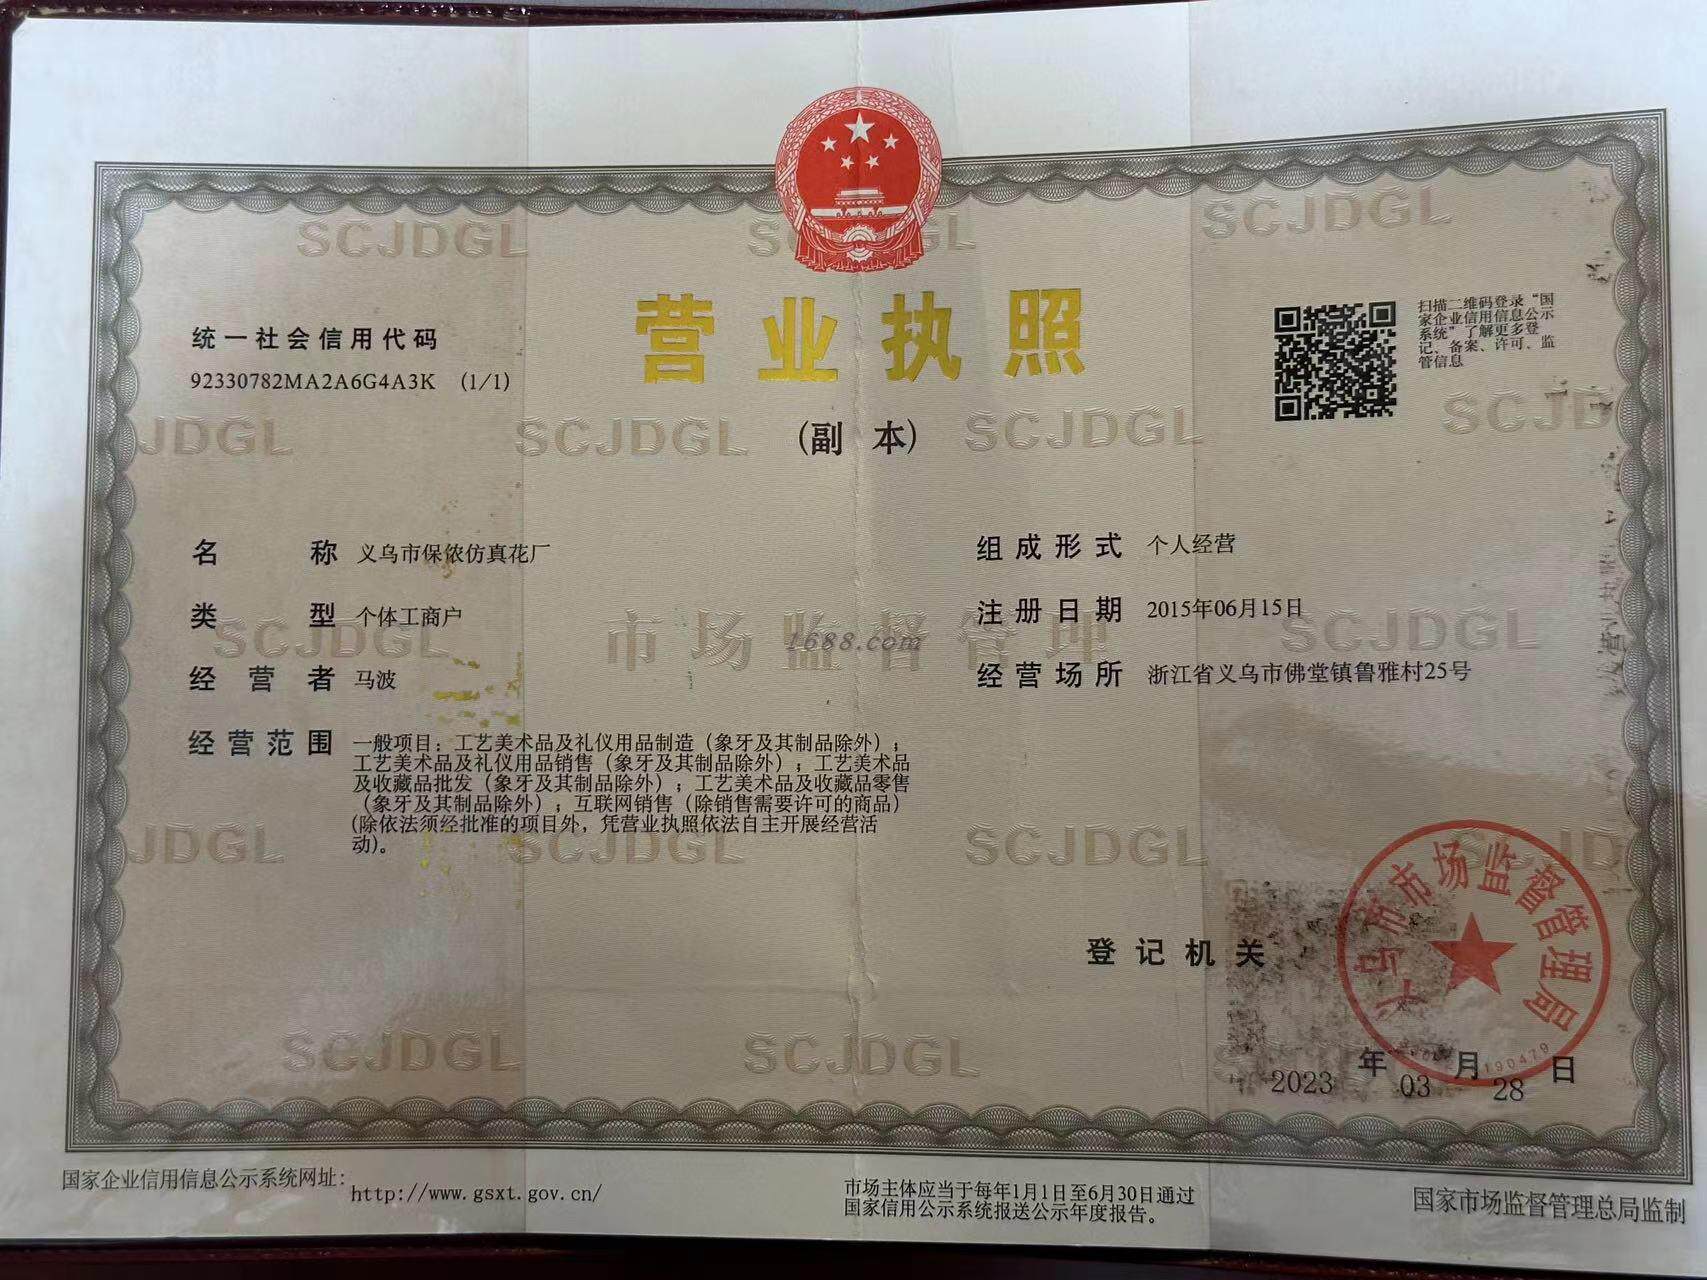 SCJDGL
SCJDGL
SCJDGL
营业执照
(副 本)
统一社会信用代码
92330782MA2A6G4A3K (1/1)
扫描二维码登录“国
家企业信用信息公示
系统”了解更多登
记、备案、许可、监
管信息
JDGL
SCJDGL
SCJDGL
SCJD
名 称 义乌市保侬仿真花厂
组成形式 个人经营
类 型 个体工商户
注册日期 2015年06月15日
SCJDGL
市场监督管理
1688.com
SCJDGL
经 营 者 马波
经营场所 浙江省义乌市佛堂镇鲁雅村25号
经营范围 一般项目：工艺美术品及礼仪用品制造（象牙及其制品除外）；
工艺美术品及礼仪用品销售（象牙及其制品除外）；工艺美术品
及收藏品批发（象牙及其制品除外）；工艺美术品及收藏品零售
（象牙及其制品除外）；互联网销售（除销售需要许可的商品）
(除依法须经批准的项目外，凭营业执照依法自主开展经营活
动)。
JDGL
SCJDGL
SCJDGL
SCJD
登记机关
义乌市市场监督管理局
SCJDGL
SCJDGL
2023年03月28日
国家企业信用信息公示系统网址：http://www.gsxt.gov.cn/
市场主体应当于每年1月1日至6月30日通过
国家信用公示系统报送公示年度报告。
国家市场监督管理总局监制